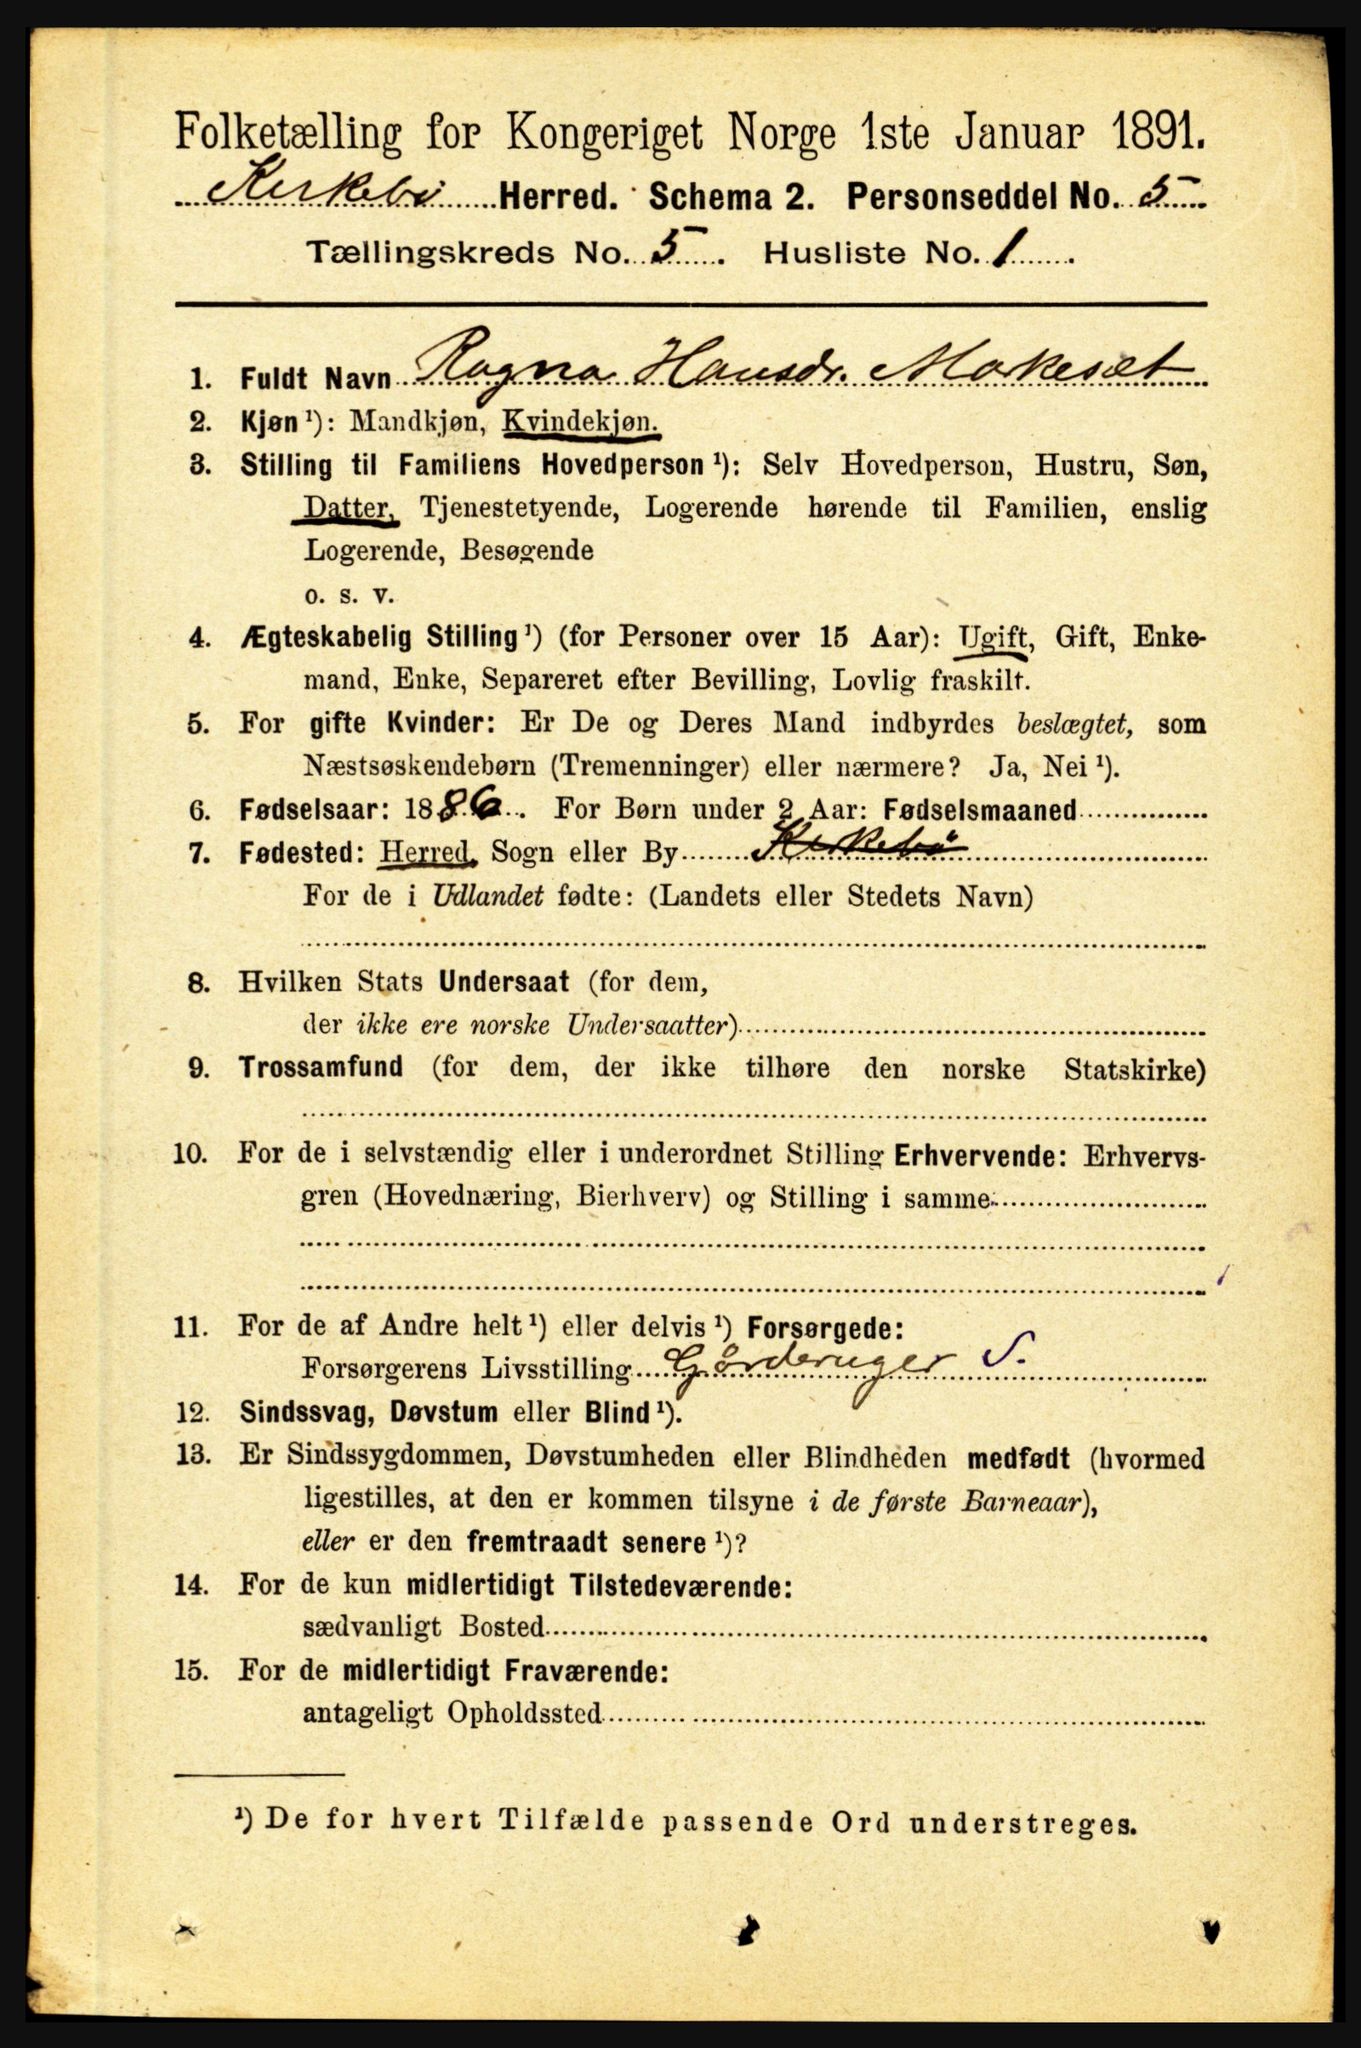 Folketælling for Kongeriget Norge 1ste Januar 1891.
Kirkebø Herred. Schema 2. Personseddel No. 5
Tællingskreds No. 5. Husliste No. 1.
1. Fuldt Navn Ragna Hansdr. Makesæt
2. Kjøn¹): Mandkjøn, Kvindekjøn.
3. Stilling til Familiens Hovedperson¹): Selv Hovedperson, Hustru, Søn,
Datter, Tjenestetyende, Logerende hørende til Familien, enslig
Logerende, Besøgende
o. s. v.
4. Ægteskabelig Stilling¹) (for Personer over 15 Aar): Ugift, Gift, Enke-
mand, Enke, Separeret efter Bevilling, Lovlig fraskilt.
5. For gifte Kvinder: Er De og Deres Mand indbyrdes beslægtet, som
Næstsøskendebørn (Tremenninger) eller nærmere? Ja, Nei¹).
6. Fødselsaar: 1886. For Børn under 2 Aar: Fødselsmaaned
7. Fødested: Herred, Sogn eller By Kirkebø
For de i Udlandet fødte: (Landets eller Stedets Navn)
8. Hvilken Stats Undersaat (for dem,
der ikke ere norske Undersaatter)
9. Trossamfund (for dem, der ikke tilhøre den norske Statskirke)
10. For de i selvstændig eller i underordnet Stilling Erhvervende: Erhvervs-
gren (Hovednæring, Bierhverv) og Stilling i samme
11. For de af Andre helt¹) eller delvis¹) Forsørgede:
Forsørgerens Livsstilling Gårdbruger S.
12. Sindssvag, Døvstum eller Blind¹).
13. Er Sindssygdommen, Døvstumheden eller Blindheden medfødt (hvormed
ligestilles, at den er kommen tilsyne i de første Barneaar),
eller er den fremtraadt senere¹)?
14. For de kun midlertidigt Tilstedeværende:
sædvanligt Bosted
15. For de midlertidigt Fraværende:
antageligt Opholdssted
¹) De for hvert Tilfælde passende Ord understreges.